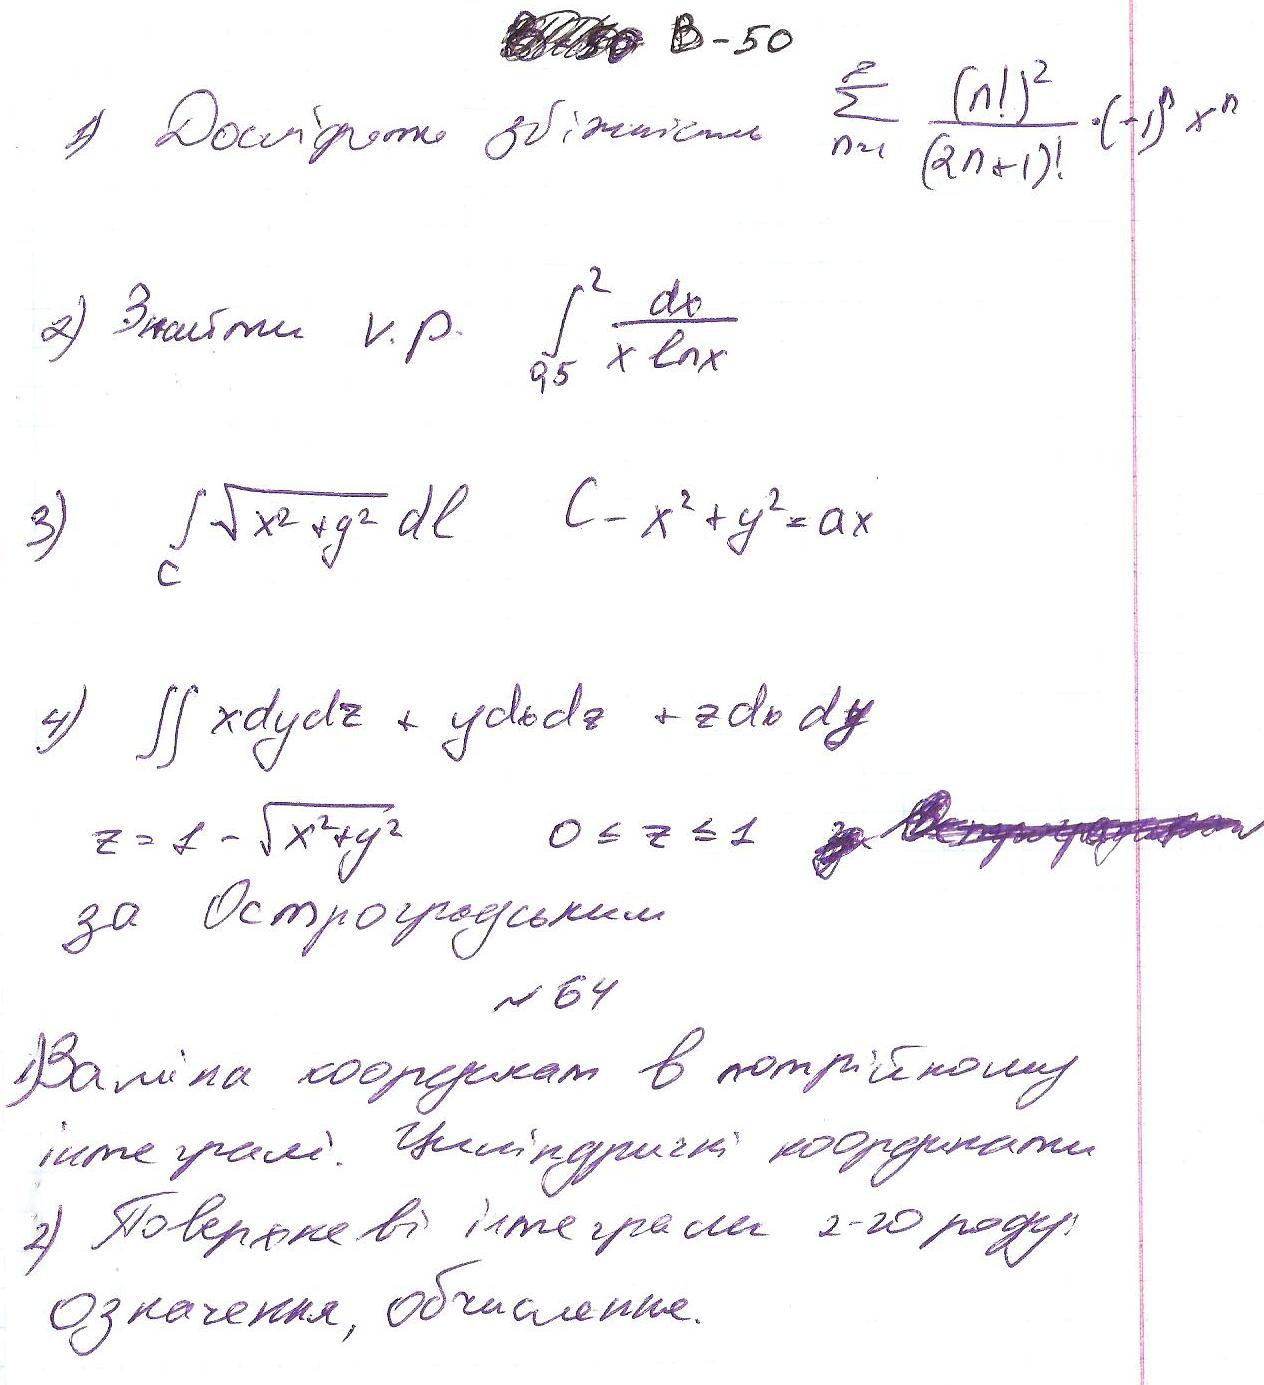 В-50
1) Дослідити збіжність \sum_{n=1}^{∞} \frac{(n!)^2}{(2n+1)!} \cdot (-1)^n x^n
2) Знайти v.p. \int_{0,5}^{2} \frac{dx}{x ln x}
3) \int_C \sqrt{x^2+y^2} dl C - x^2+y^2=ax
4) \iint xdydz + ydxdz + zdxdy
z = 1 - \sqrt{x^2+y^2} 0 ≤ z ≤ 1
за Остроградським
№ 64
1) Заміна координат в потрійному
інтегралі. Циліндричні координати
2) Поверхневі інтеграли 2-го роду:
означення, обчислення.